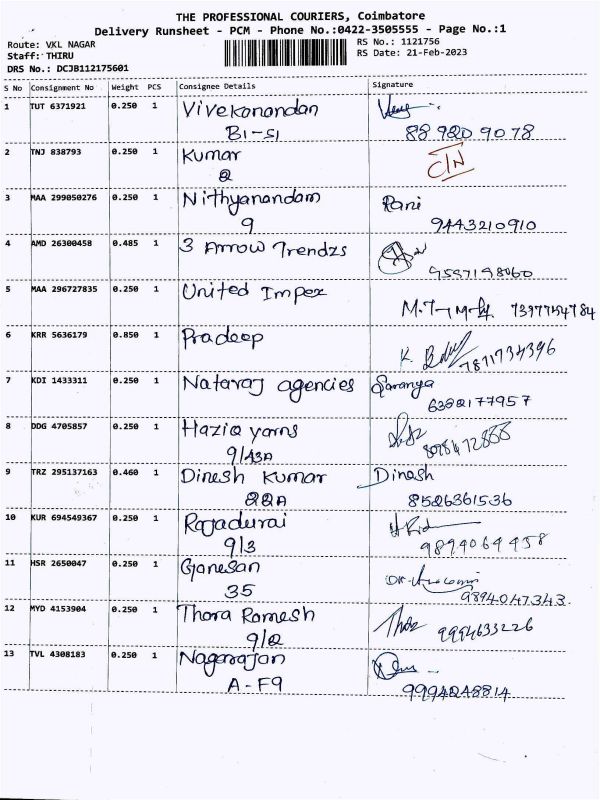 THE PROFESSIONAL COURIERS, Coimbatore
Delivery Runsheet - PCM - Phone No.:0422-3505555 - Page No.:1
Route: VKL NAGAR
RS No.: 1121756
Staff: THIRU
RS Date: 21-Feb-2023
DRS No.: DCJB112175601
S No Consignment No Weight PCS Consignee Details Signature
1 TUT 6371921 0.250 1 Vivekanandan
B1-S1 88 9209078
2 TNJ 838793 0.250 1 Kumar
2
3 MAA 299050276 0.250 1 Nithyanandam Rani
9 9443210910
4 AMD 26300458 0.485 1 3 Arrow Trendzs
9597198060
5 MAA 296727835 0.250 1 United Impex
6 KRR 5636179 0.850 1 Pradeep K.
7871734396
7 KDI 1433311 0.250 1 Nataraj agencies Saranya
6382177957
8 DDG 4705857 0.250 1 Haziq yarns
9/43A
9 TRZ 295137163 0.460 1 Dinesh Kumar Dinesh
22A 8526361536
10 KUR 694549367 0.250 1 Rajadurai
9/3 9894064458
11 HSR 2650047 0.250 1 Ganesan
35 9894047343.
12 MYD 4153904 0.250 1 Thara Ramesh
9/2 9994633226
13 TVL 4308183 0.250 1 Nagarajan
A-F9 9994248814